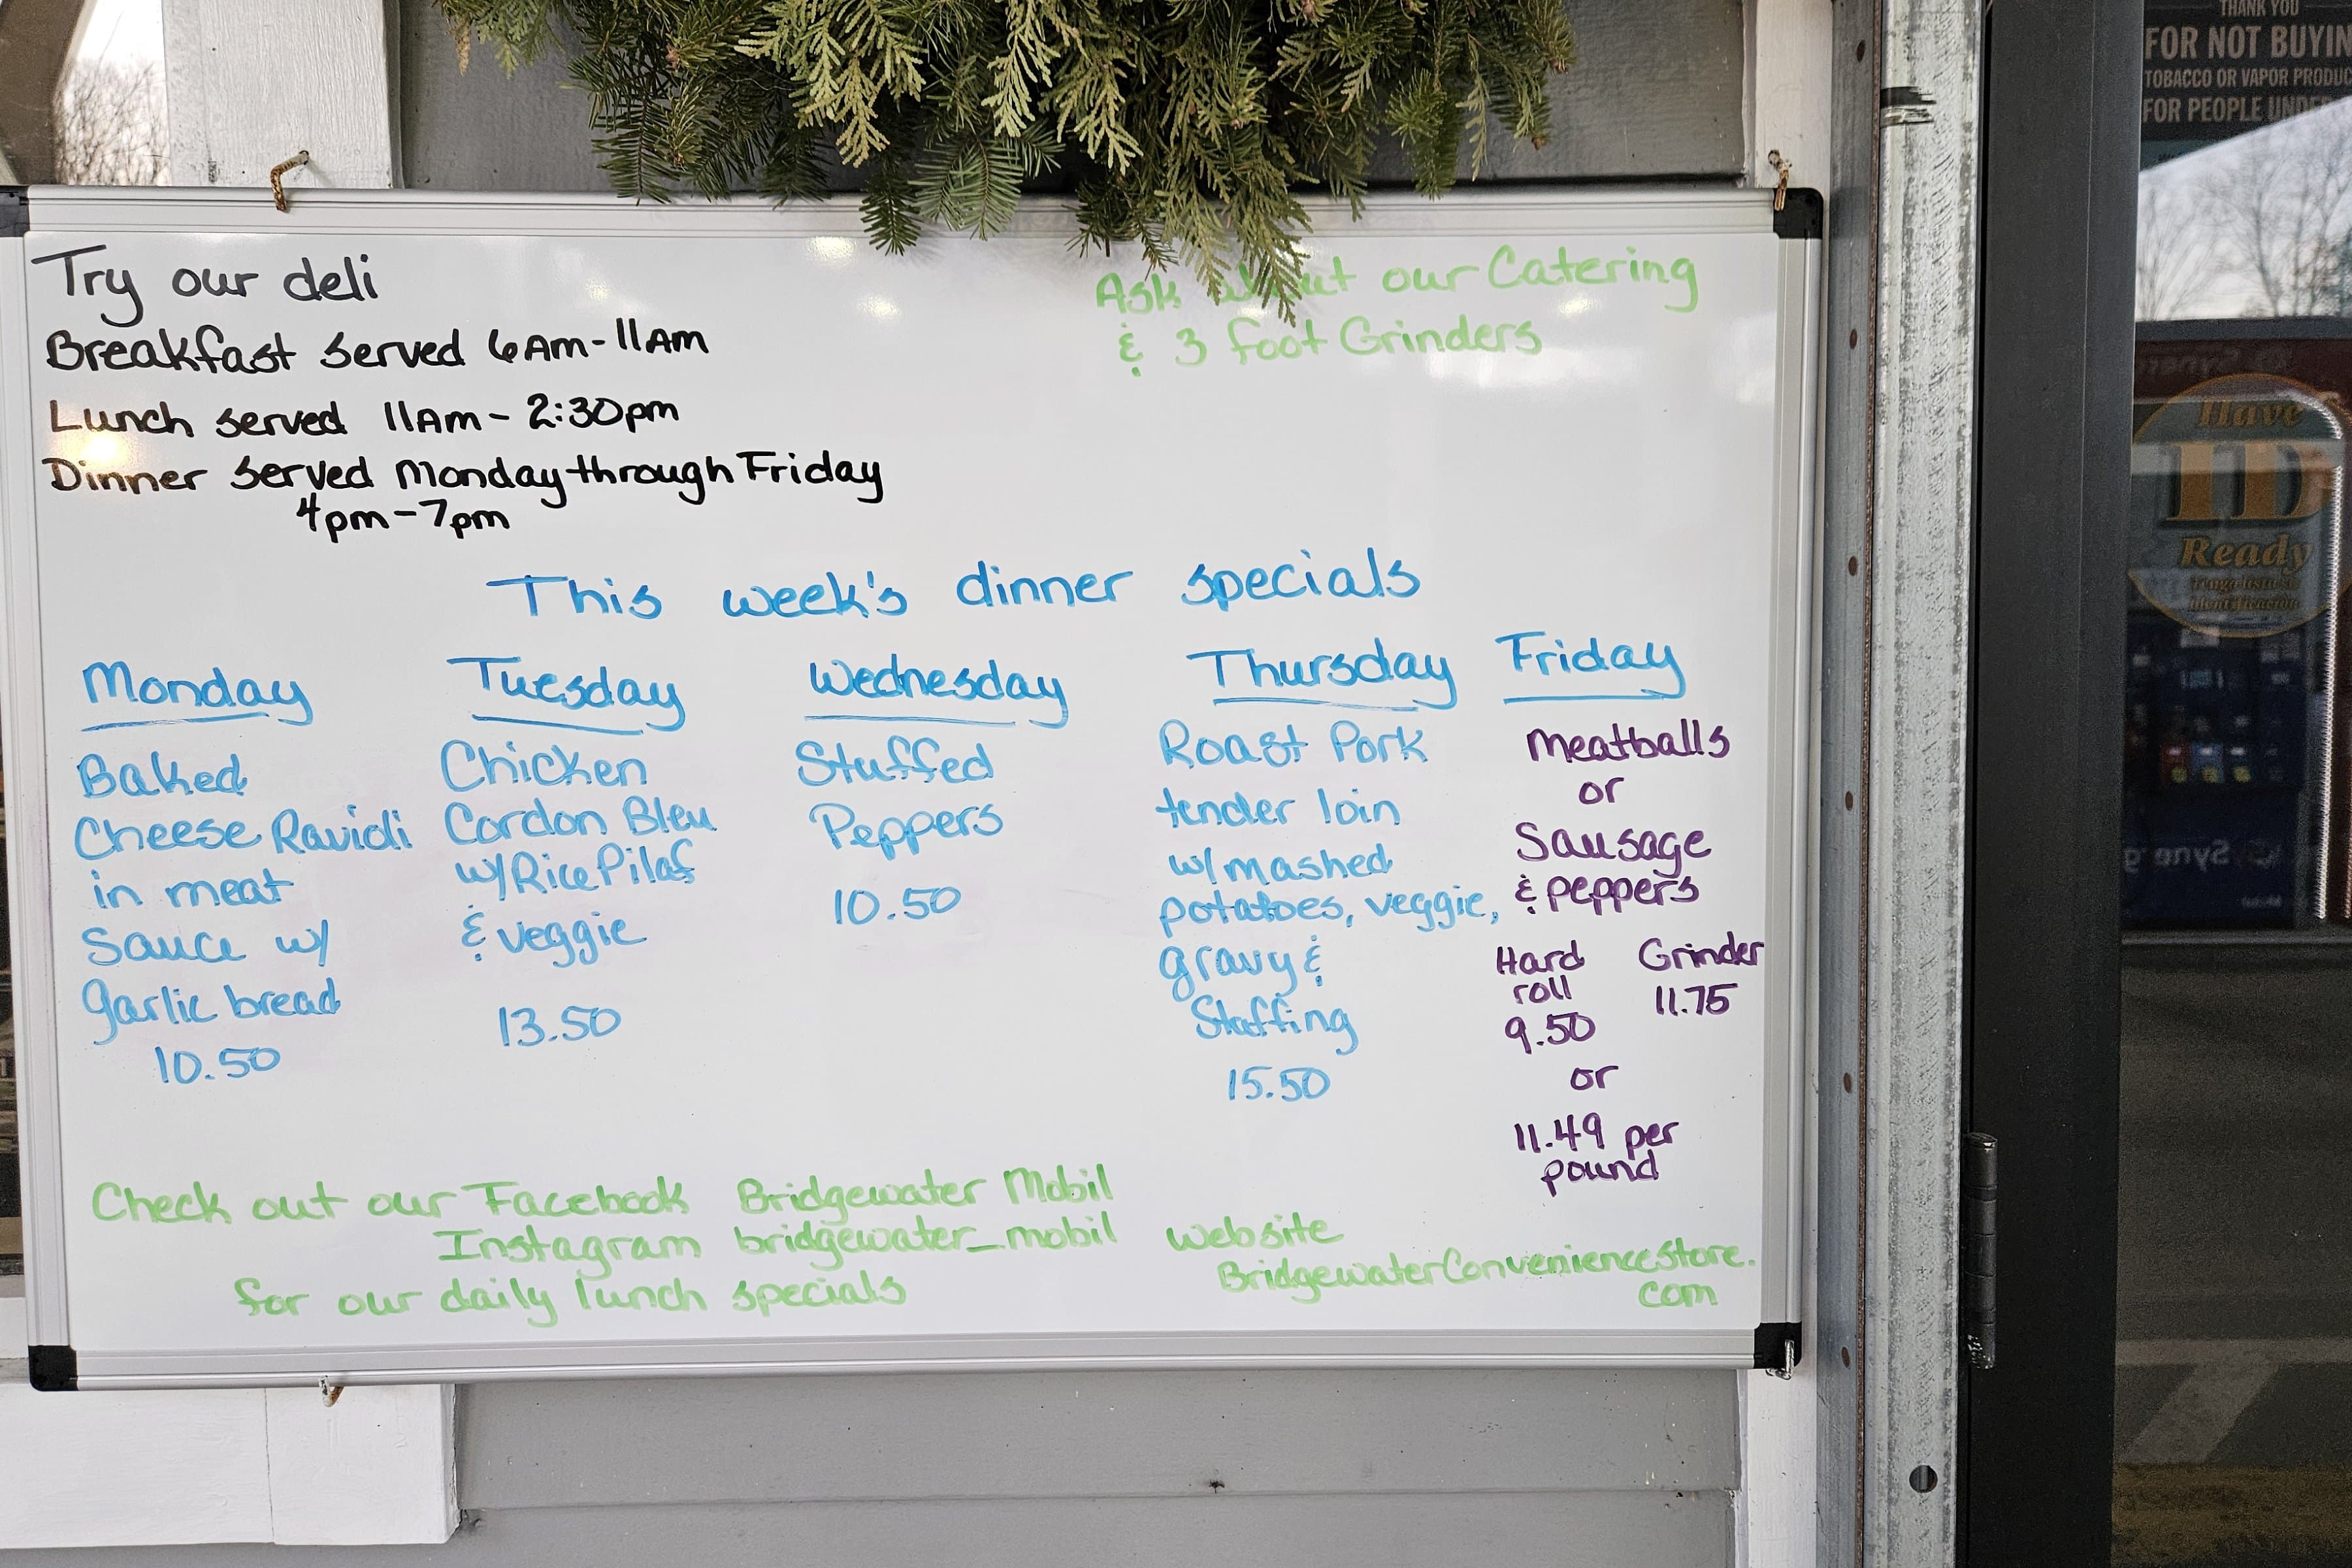 Try our deli
Breakfast served 6AM-11AM
Lunch served 11AM-2:30pm
Dinner served Monday through Friday
4pm-7pm
Ask about our Catering
& 3 foot Grinders
This week's dinner specials
Monday
Baked
Cheese Ravioli
in meat
Sauce w/
garlic bread
10.50
Tuesday
Chicken
Cordon Bleu
w/Rice Pilaf
& veggie
13.50
Wednesday
Stuffed
Peppers
10.50
Thursday
Roast Pork
tender loin
w/mashed
potatoes, veggie,
gravy &
Stuffing
15.50
Friday
Meatballs
or
Sausage
& peppers
Hard
roll
9.50
Grinder
11.75
or
11.49 per
pound
Check out our Facebook Bridgewater Mobil
Instagram bridgewater_mobil
for our daily lunch specials
website
BridgewaterConvenienceStore.
com
THANK YOU
FOR NOT BUYIN
TOBACCO OR VAPOR PRODU
FOR PEOPLE UNDE
Have
ID
Ready
Synerg